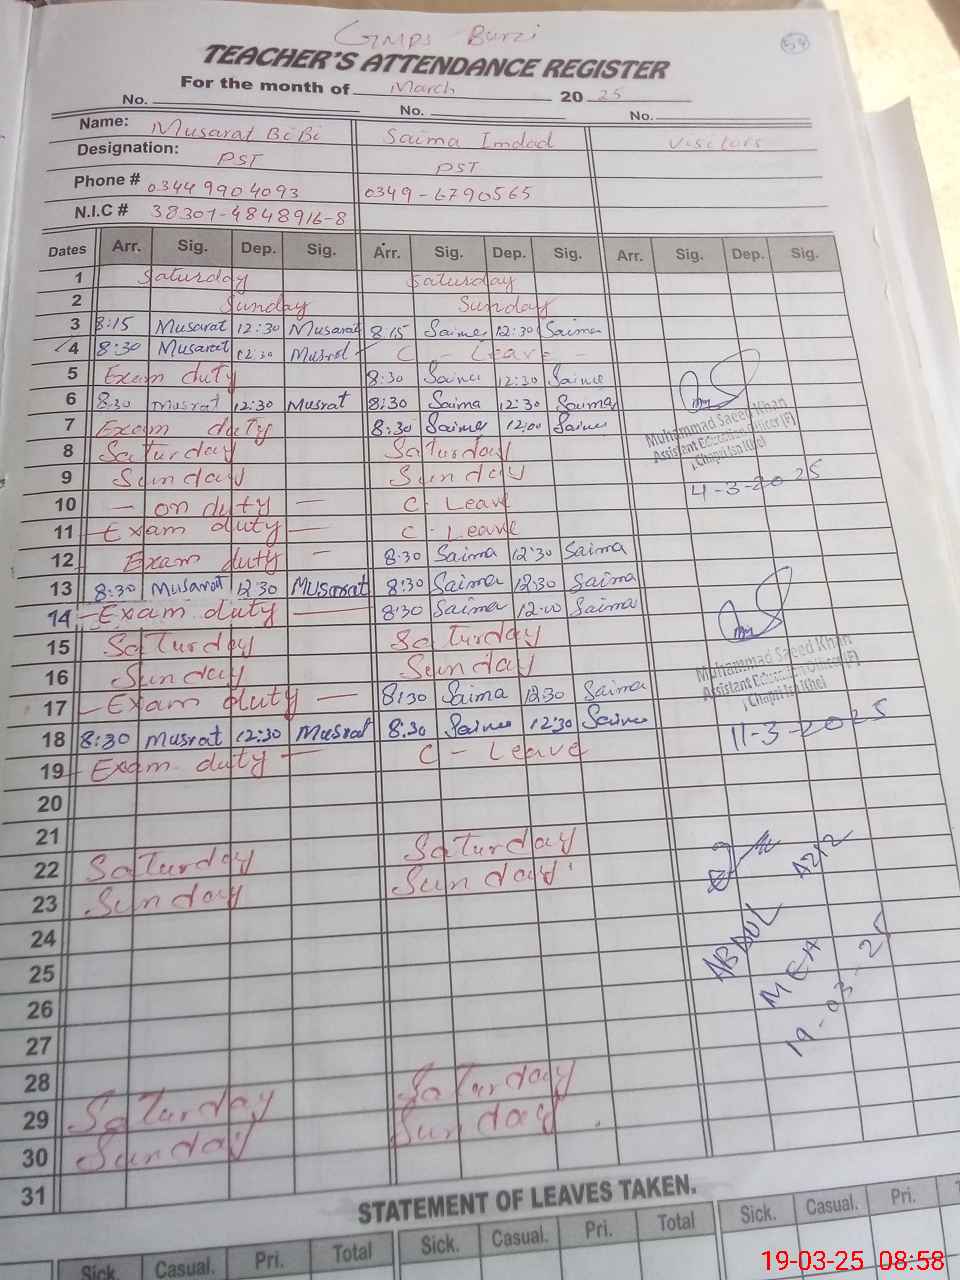 GMPS Burzi
54
TEACHER'S ATTENDANCE REGISTER
For the month of March 2025
No. No. No.
Name: Musarat BiBi Saima Imdad Visitors
Designation: PST PST
Phone # 03449904093 0349-6790565
N.I.C # 38301-4848916-8
Dates Arr. Sig. Dep. Sig. Arr. Sig. Dep. Sig. Arr. Sig. Dep. Sig.
1 Saturday Saturday
2 Sunday Sunday
3 8:15 Musarat 12:30 Musarat 8:15 Saima 12:30 Saima
4 8:30 Musarat 12:30 Musrat C - Leave -
5 Exam duty 8:30 Saima 12:30 Saima
6 8:30 Musrat 12:30 Musrat 8:30 Saima 12:30 Saima
7 Exam duty 8:30 Saima 12:00 Saima
Muhammad Saeed Khan
Assistant Education Officer (F)
Chapri Isa Khel
8 Saturday Saturday
9 Sunday Sunday
4-3-2025
10 - on duty - C - Leave
11 - Exam duty - C - Leave
12 Exam duty - 8:30 Saima 12:30 Saima
13 8:30 Musarat 12:30 Musarat 8:30 Saima 12:30 Saima
14 - Exam duty - 8:30 Saima 12:00 Saima
15 Saturday Saturday
16 Sunday Sunday
Muhammad Saeed Khan
Assistant Education Officer (F)
Chapri Isa Khel
17 - Exam duty - 8:30 Saima 12:30 Saima
18 8:30 Musrat 12:30 Musrat 8:30 Saima 12:30 Saima
11-3-2025
19 - Exam duty - C - Leave
20
21
22 Saturday Saturday
23 Sunday Sunday
ABDUL AZIZ
MEA
19-03-25
24
25
26
27
28
29 Saturday Saturday
30 Sunday Sunday
31
STATEMENT OF LEAVES TAKEN.
Sick. Casual. Pri. Total Sick. Casual. Pri. Total Sick. Casual. Pri.
19-03-25 08:58